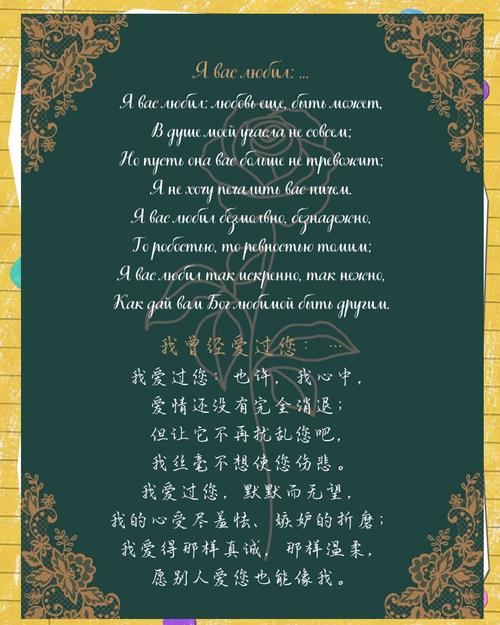 Я вас любил: ...
Я вас любил: любовь еще, быть может,
В душе моей угасла не совсем;
Но пусть она вас больше не тревожит;
Я не хочу печалить вас ничем.
Я вас любил безмолвно, безнадежно,
То робостью, то ревностью томим;
Я вас любил так искренно, так нежно,
Как дай вам Бог любимой быть другим.
我曾经爱过您：…
我爱过您：也许，我心中，
爱情还没有完全消退；
但让它不再扰乱您吧，
我丝毫不想使您伤悲。
我爱过您，默默而无望，
我的心受尽羞怯、嫉妒的折磨；
我爱得那样真诚，那样温柔，
愿别人爱您也能像我。